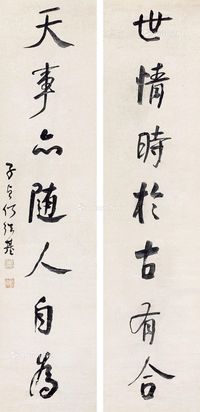 世情時於古有合
天事亦随人自為
子貞何紹基